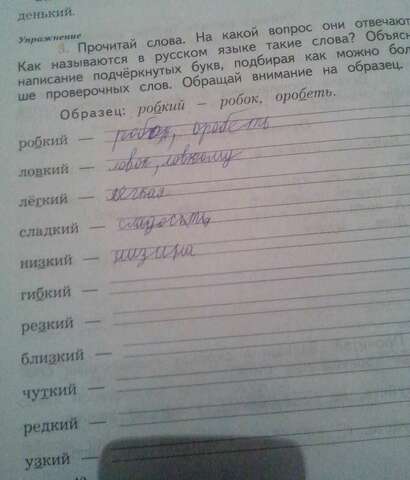 денький.
Упражнение
3. Прочитай слова. На какой вопрос они отвечают
Как называются в русском языке такие слова? Объясн
написание подчёркнутых букв, подбирая как можно бол
ше проверочных слов. Обращай внимание на образец.
Образец: робкий – робок, оробеть.
робкий — робок, оробеть
ловкий — ловок, ловкому
лёгкий — легкая
сладкий — сладость
низкий — низина
гибкий —
резкий —
близкий —
чуткий —
редкий —
узкий —